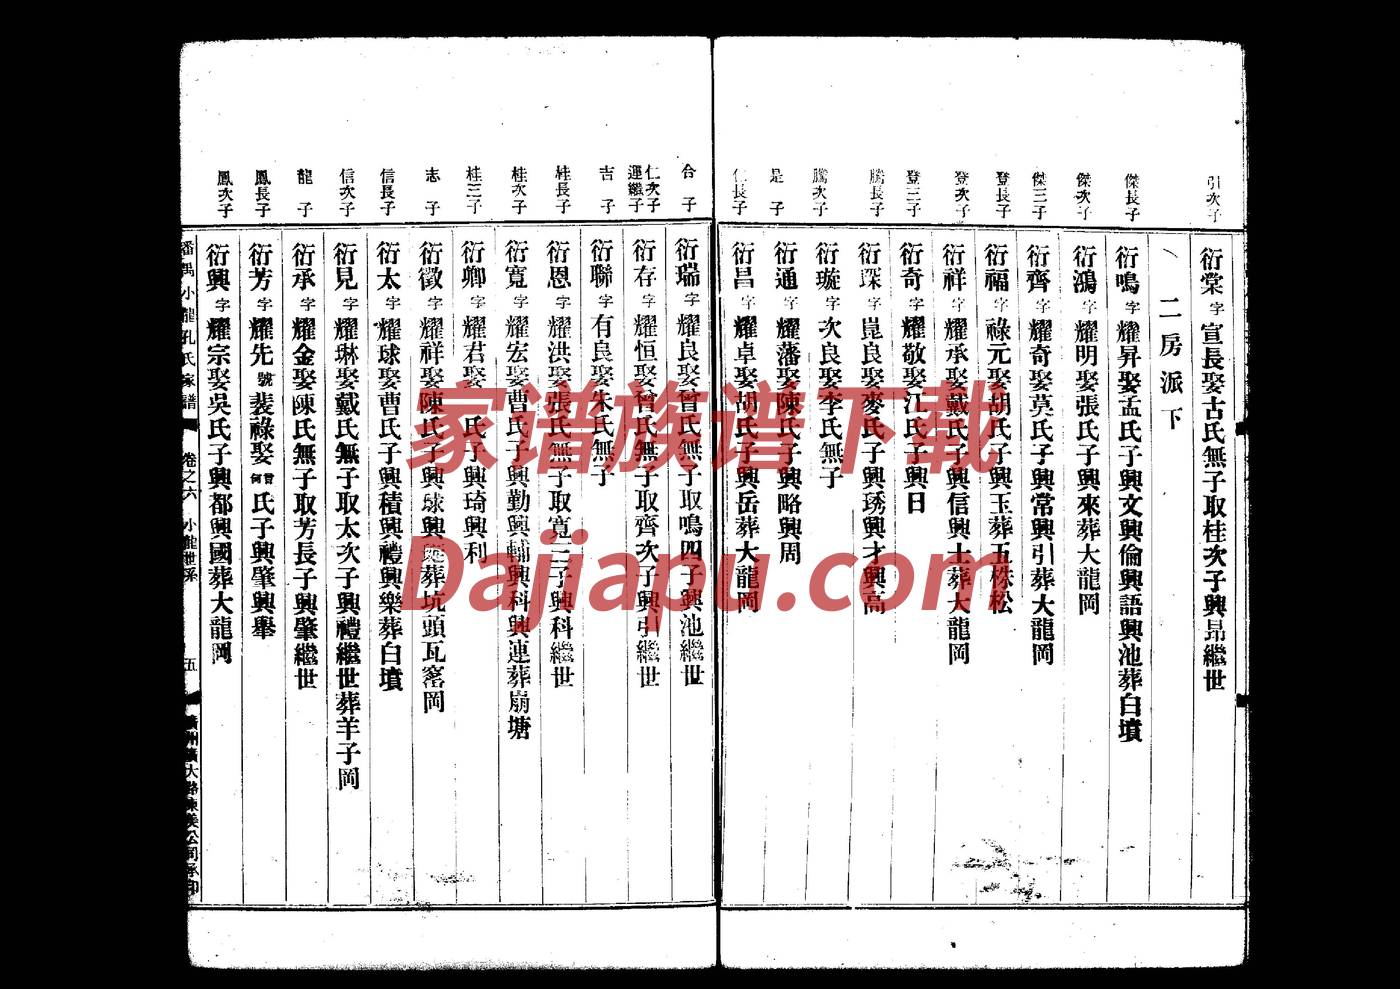 引次子
衍棠字宣長娶古氏無子取桂次子興昂繼世
二房派下
傑長子
衍鳴字耀昇娶孟氏子興文興倫興語興池葬白墳
傑次子
衍鴻字耀明娶張氏子興來葬大龍岡
傑三子
衍齊字耀奇娶莫氏子興常興引葬大龍岡
登長子
衍福字祿元娶胡氏子興玉葬五株松
登次子
衍祥字耀承娶戴氏子興信興士葬大龍岡
登三子
衍奇字耀敬娶江氏子興日
騰長子
衍琛字崑良娶麥氏子興琇興才興高
騰次子
衍璇字次良娶李氏無子
是子
衍通字耀藩娶陳氏子興略興周
仁長子
衍昌字耀卓娶胡氏子興岳葬大龍岡
合子
衍瑞字耀良娶曾氏無子取鳴四子興池繼世
仁次子運繼子
衍存字耀恒娶曾氏無子取齊次子興引繼世
吉子
衍聯字有良娶朱氏無子
桂長子
衍恩字耀洪娶張氏無子取寬三子興科繼世
桂次子
衍寬字耀宏娶曹氏子興勤興輔興科興連葬崩塘
桂三子
衍卿字耀君娶氏子興琦興利
志子
衍徵字耀祥娶陳氏子興球興葬坑頭瓦窰岡
信長子
衍太字耀球娶曹氏子興積興禮興樂葬白墳
信次子
衍見字耀琳娶戴氏無子取太次子興禮繼世葬羊子岡
龍子
衍承字耀金娶陳氏無子取芳長子興肇繼世
鳳長子
衍芳字耀先號裴祿娶曾何氏子興肇興舉
鳳次子
衍興字耀宗娶吳氏子興都興國葬大龍岡
番禺小龍孔氏家譜 卷之六 小龍世系 五 廣州舊大路東美公司承印
家谱族谱下载
Dajiapu.com